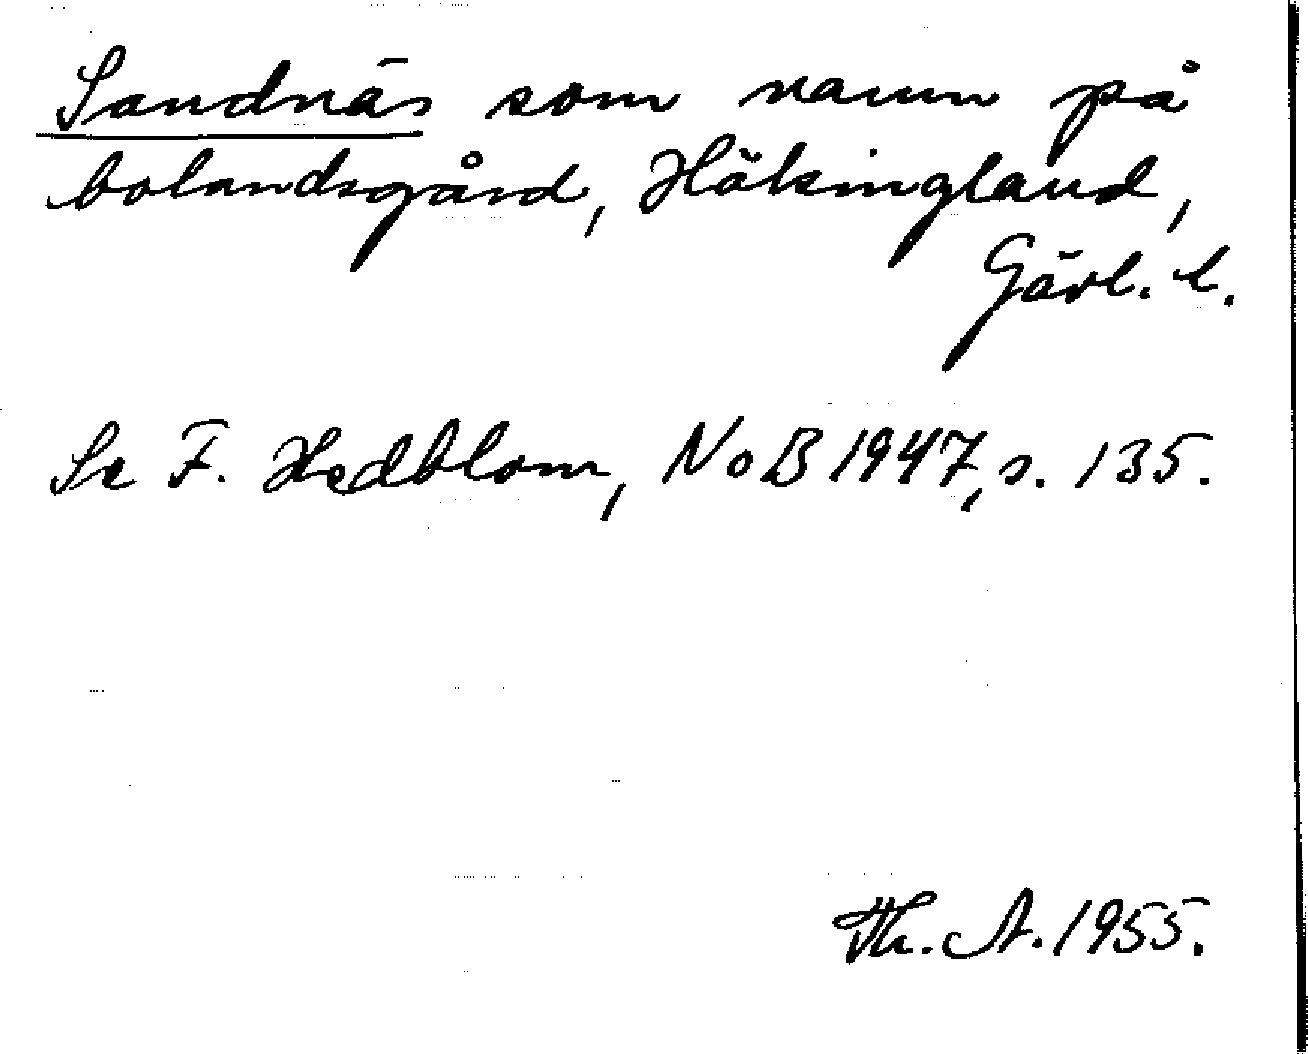 Sandnäs som namn på
bolandsgård, Hälsingland,
Gävl. l.
Se F. Hedblom, NoB 1947, s. 135.
Th. A. 1955.